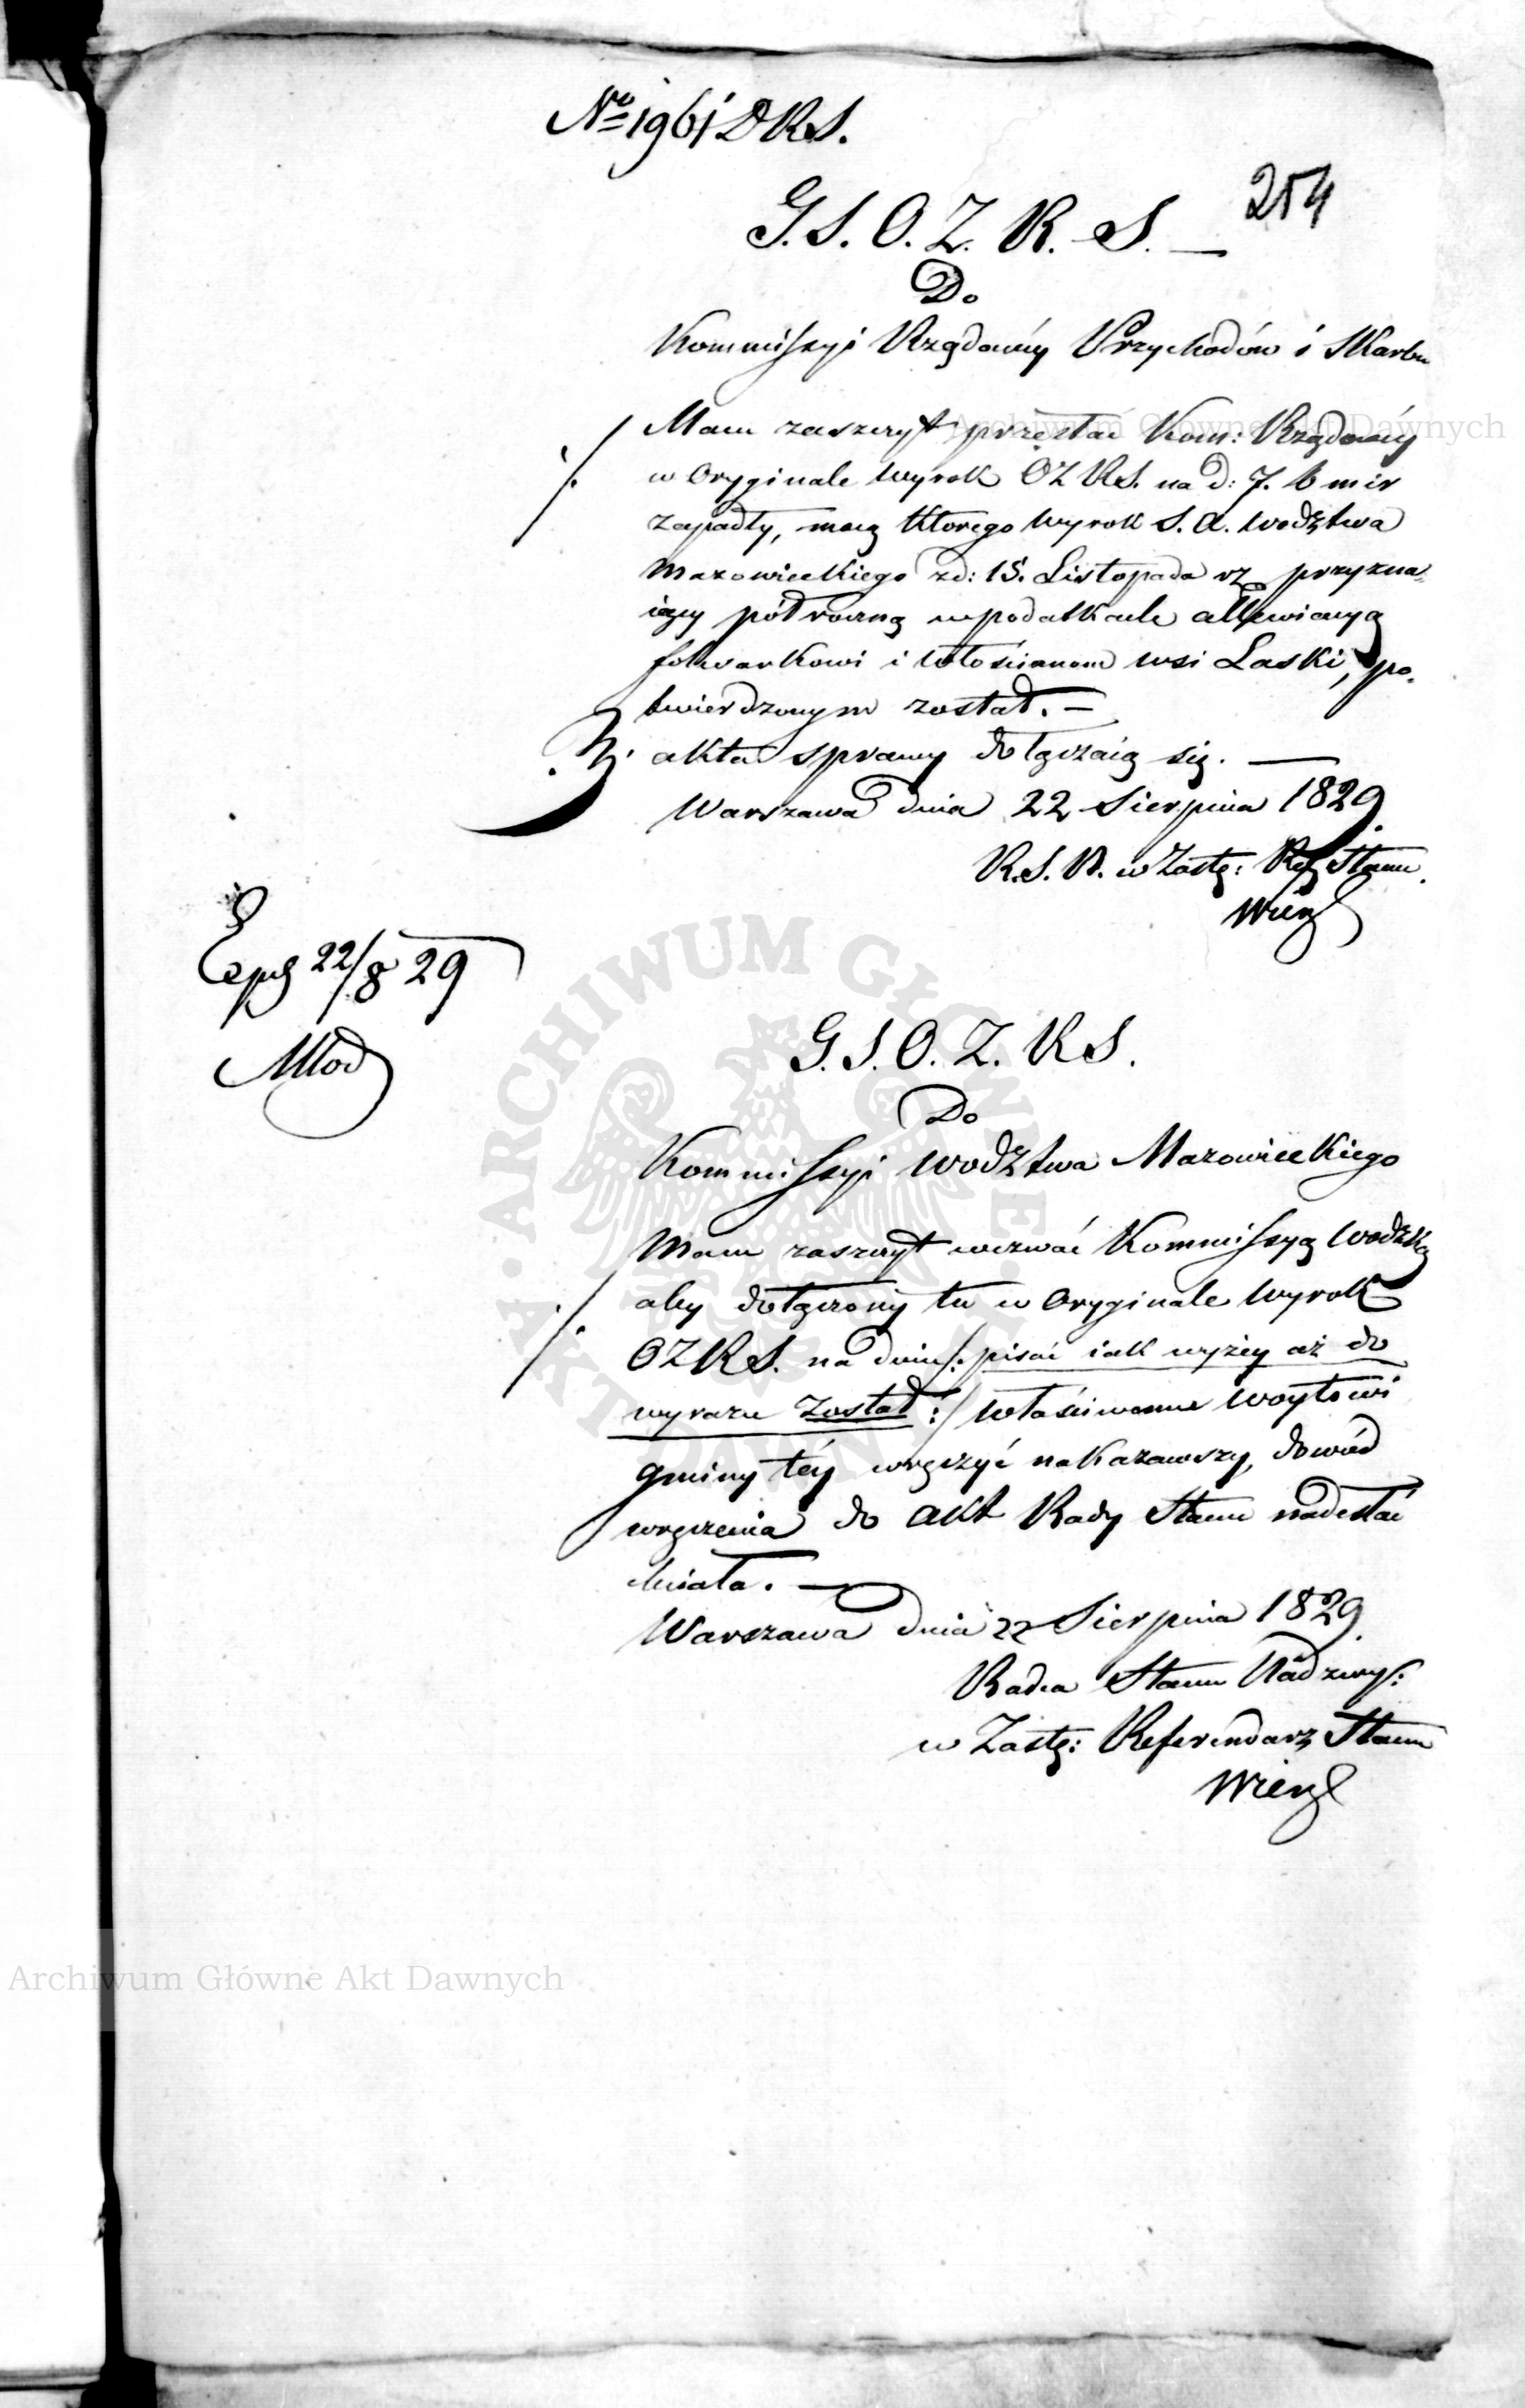 No 1961 DRS.
254
G. S. O. Z. R. S. —
Do
Kommissyi Rządowéy Przychodów i Skarbu
Mam zaszczyt przesłać Kom: Rządowéy
w Oryginale wyrok OZRS. na d: 7. b m i r
zapadły, mocą którego wyrok S. A. wodztwa
Mazowieckiego z d: 15. Listopada rz przyzna-
iący półroczną w podatkach allewiacyą
folwarkowi i włościanom wsi Laski, po-
twierdzonym został. —
akta sprawy dołączaią się. —
Warszawa dnia 22 Sierpnia 1829.
R. S. N. w Zastę: Ref Stanu.
Exp 22/8 29
Młod
G. S. O. Z. R S.
Do
Kommissyi wodztwa Mazowieckiego
Mam zaszczyt wezwać Kommissyą wodzką
aby dołączony tu w Oryginale wyrok
OZRS. na dniu /: pisać iak wyżey aż do
wyrazu został :/ właściwemu woytowi
gminy téy wręczyć nakazawszy, dowód
wręczenia do akt Rady Stanu nadesłać
chciała. —
Warszawa dnia 22 Sierpnia 1829.
Radca Stanu Nadzwy:
w Zastę: Referendarz Stanu
Archiwum Główne Akt Dawnych
Archiwum Główne Akt Dawnych
ARCHIWUM GŁÓWNE AKT DAWNYCH